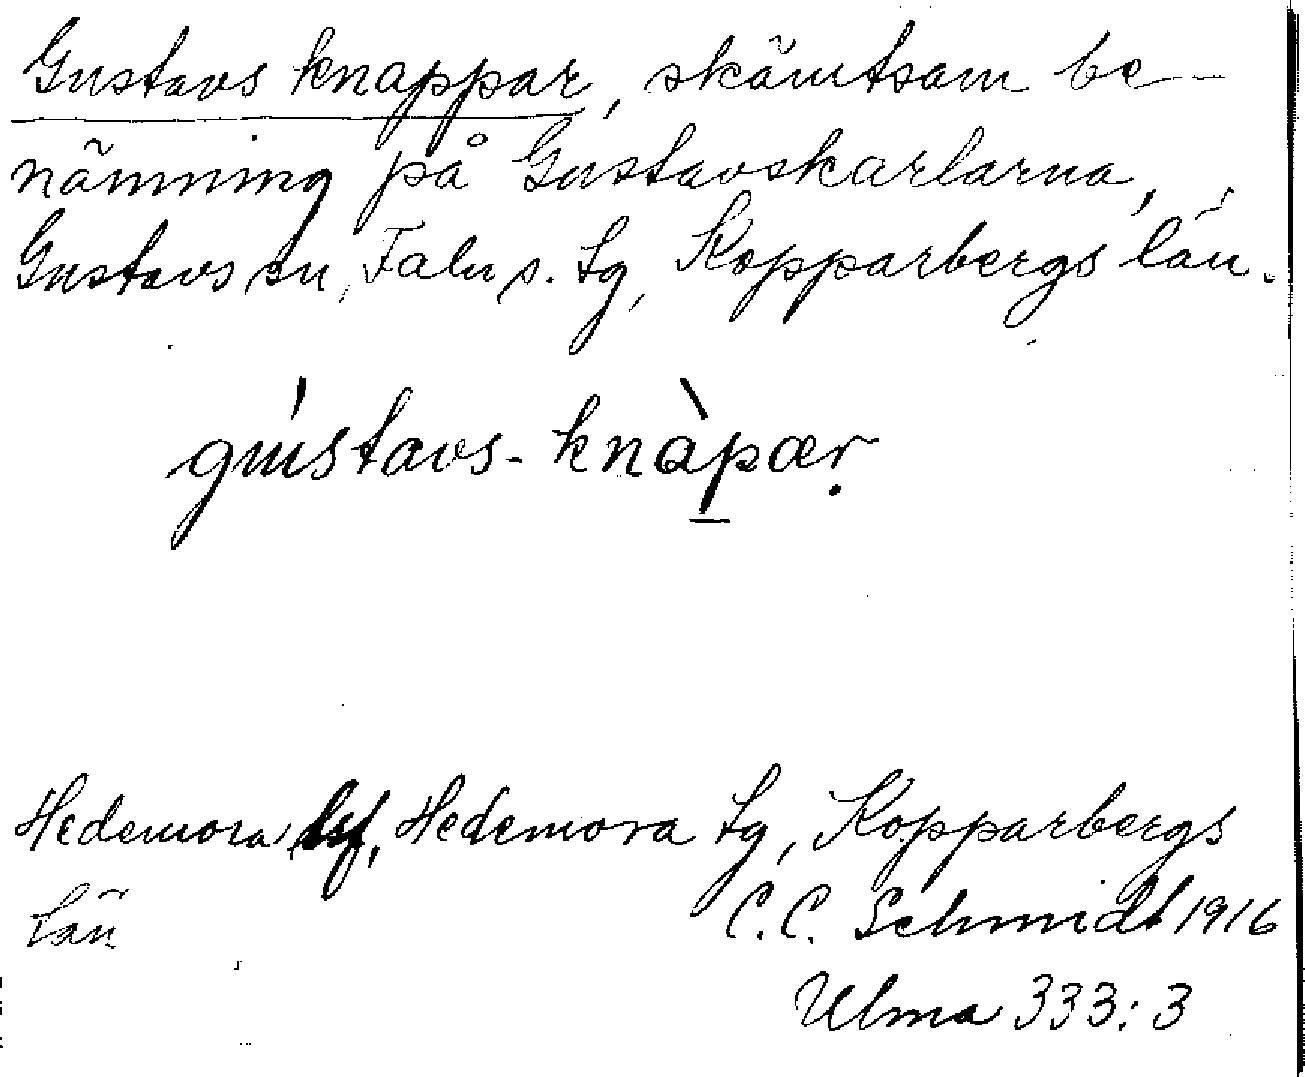 Gustavs knappar, skämtsam be-
nämning på Gustavskarlarna,
Gustavs sn, Falu s. tg, Kopparbergs län.
gústavs-knàpær
Hedemora lsf, Hedemora tg, Kopparbergs
län
C.C. Schmidt 1916
Ulma 333:3